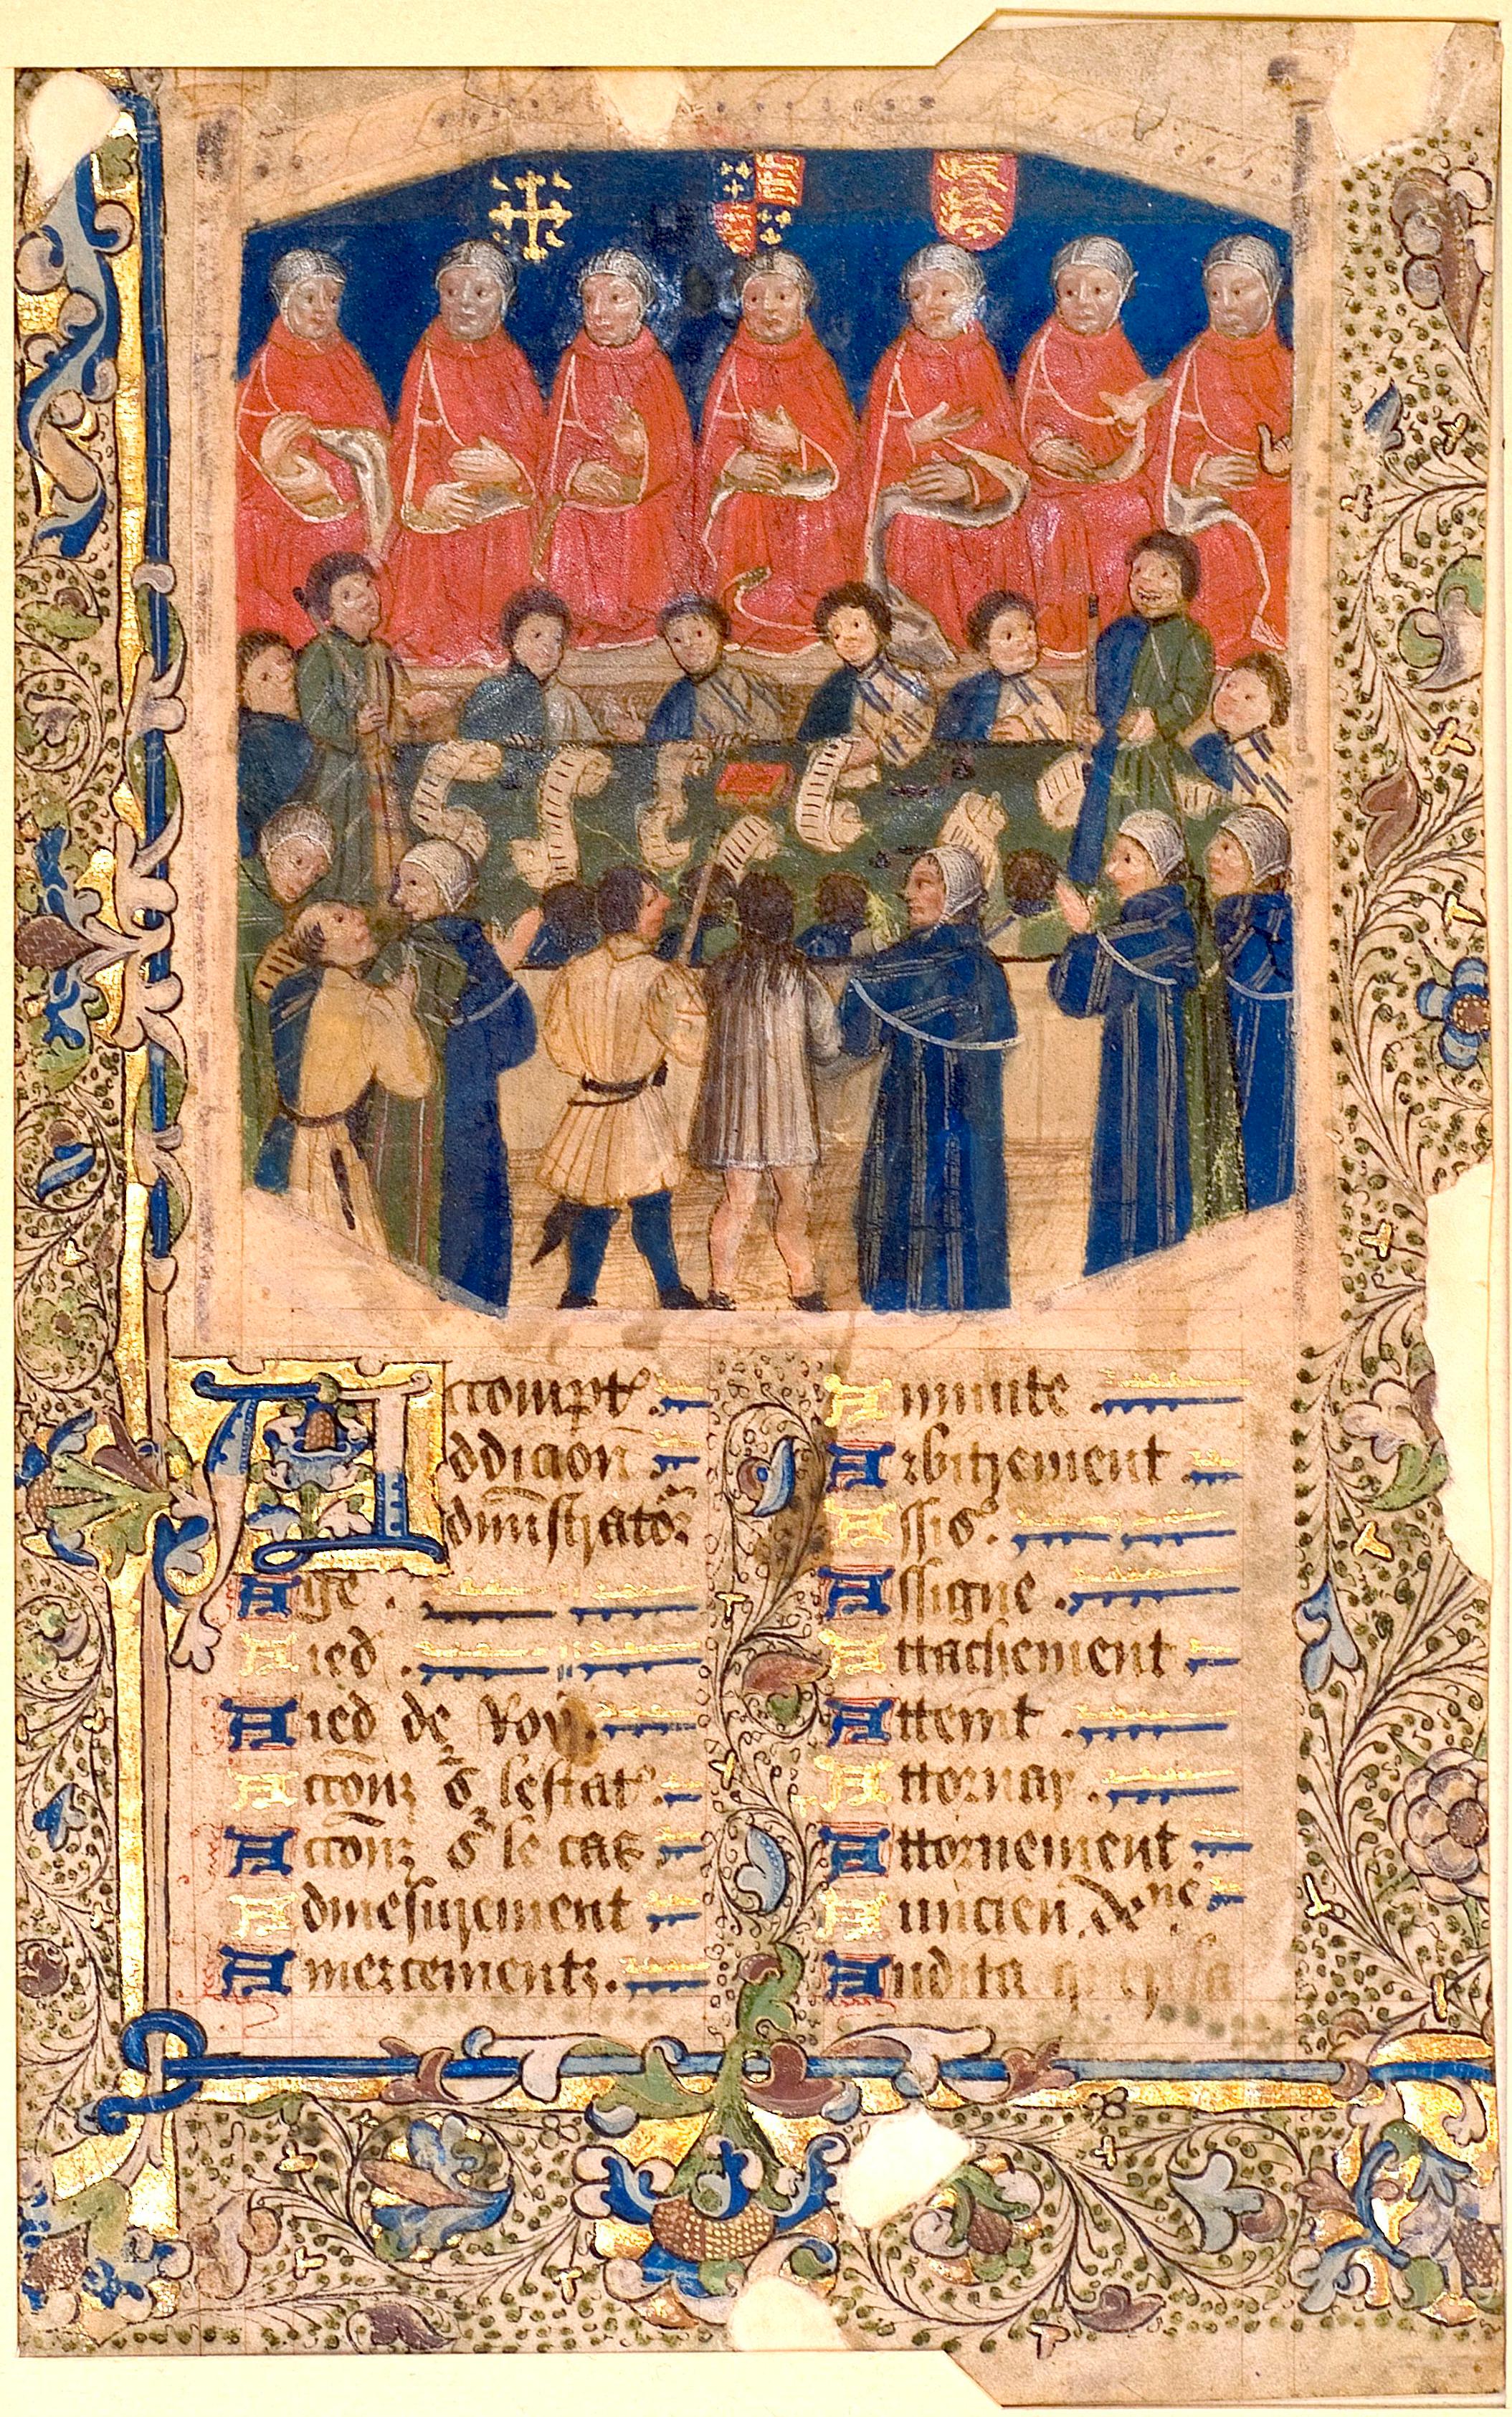 Accompt
Addicion
Administrator
Age
Aied
Aied de Roy
Accionz sr lestat
Accionz sr le cas
Admesurement
Amercementz
Annuite
Arbitrement
Assis
Assigne
Attachement
Atteint
Attornay
Attornement
Auncien dene
Audita